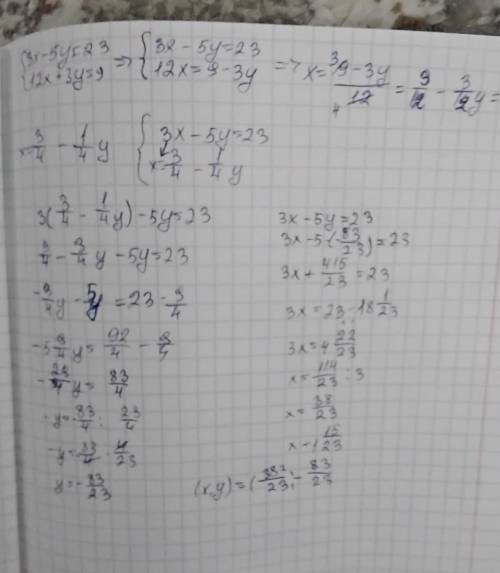 {3x-5y=23 {12x+3y=9 => {3x-5y=23 {12x=9-3y => x=9-3y/12 = 9/12 - 3/12y=
x=3/4 - 1/4y {3x-5y=23 {x=3/4 - 1/4y
3(3/4 - 1/4y)-5y=23
9/4 - 3/4y -5y=23
-3/4y - 5y =23-9/4
-5 3/4y = 92/4 - 9/4
-23/4y = 83/4
-y=83/4 : 23/4
-y=83/4 · 4/23
y=-83/23
3x-5y=23
3x-5·(-83/23)=23
3x+415/23=23
3x=23-18 1/23
3x=4 22/23
x=114/23 :3
x=38/23
x=1 15/23
(x,y)=